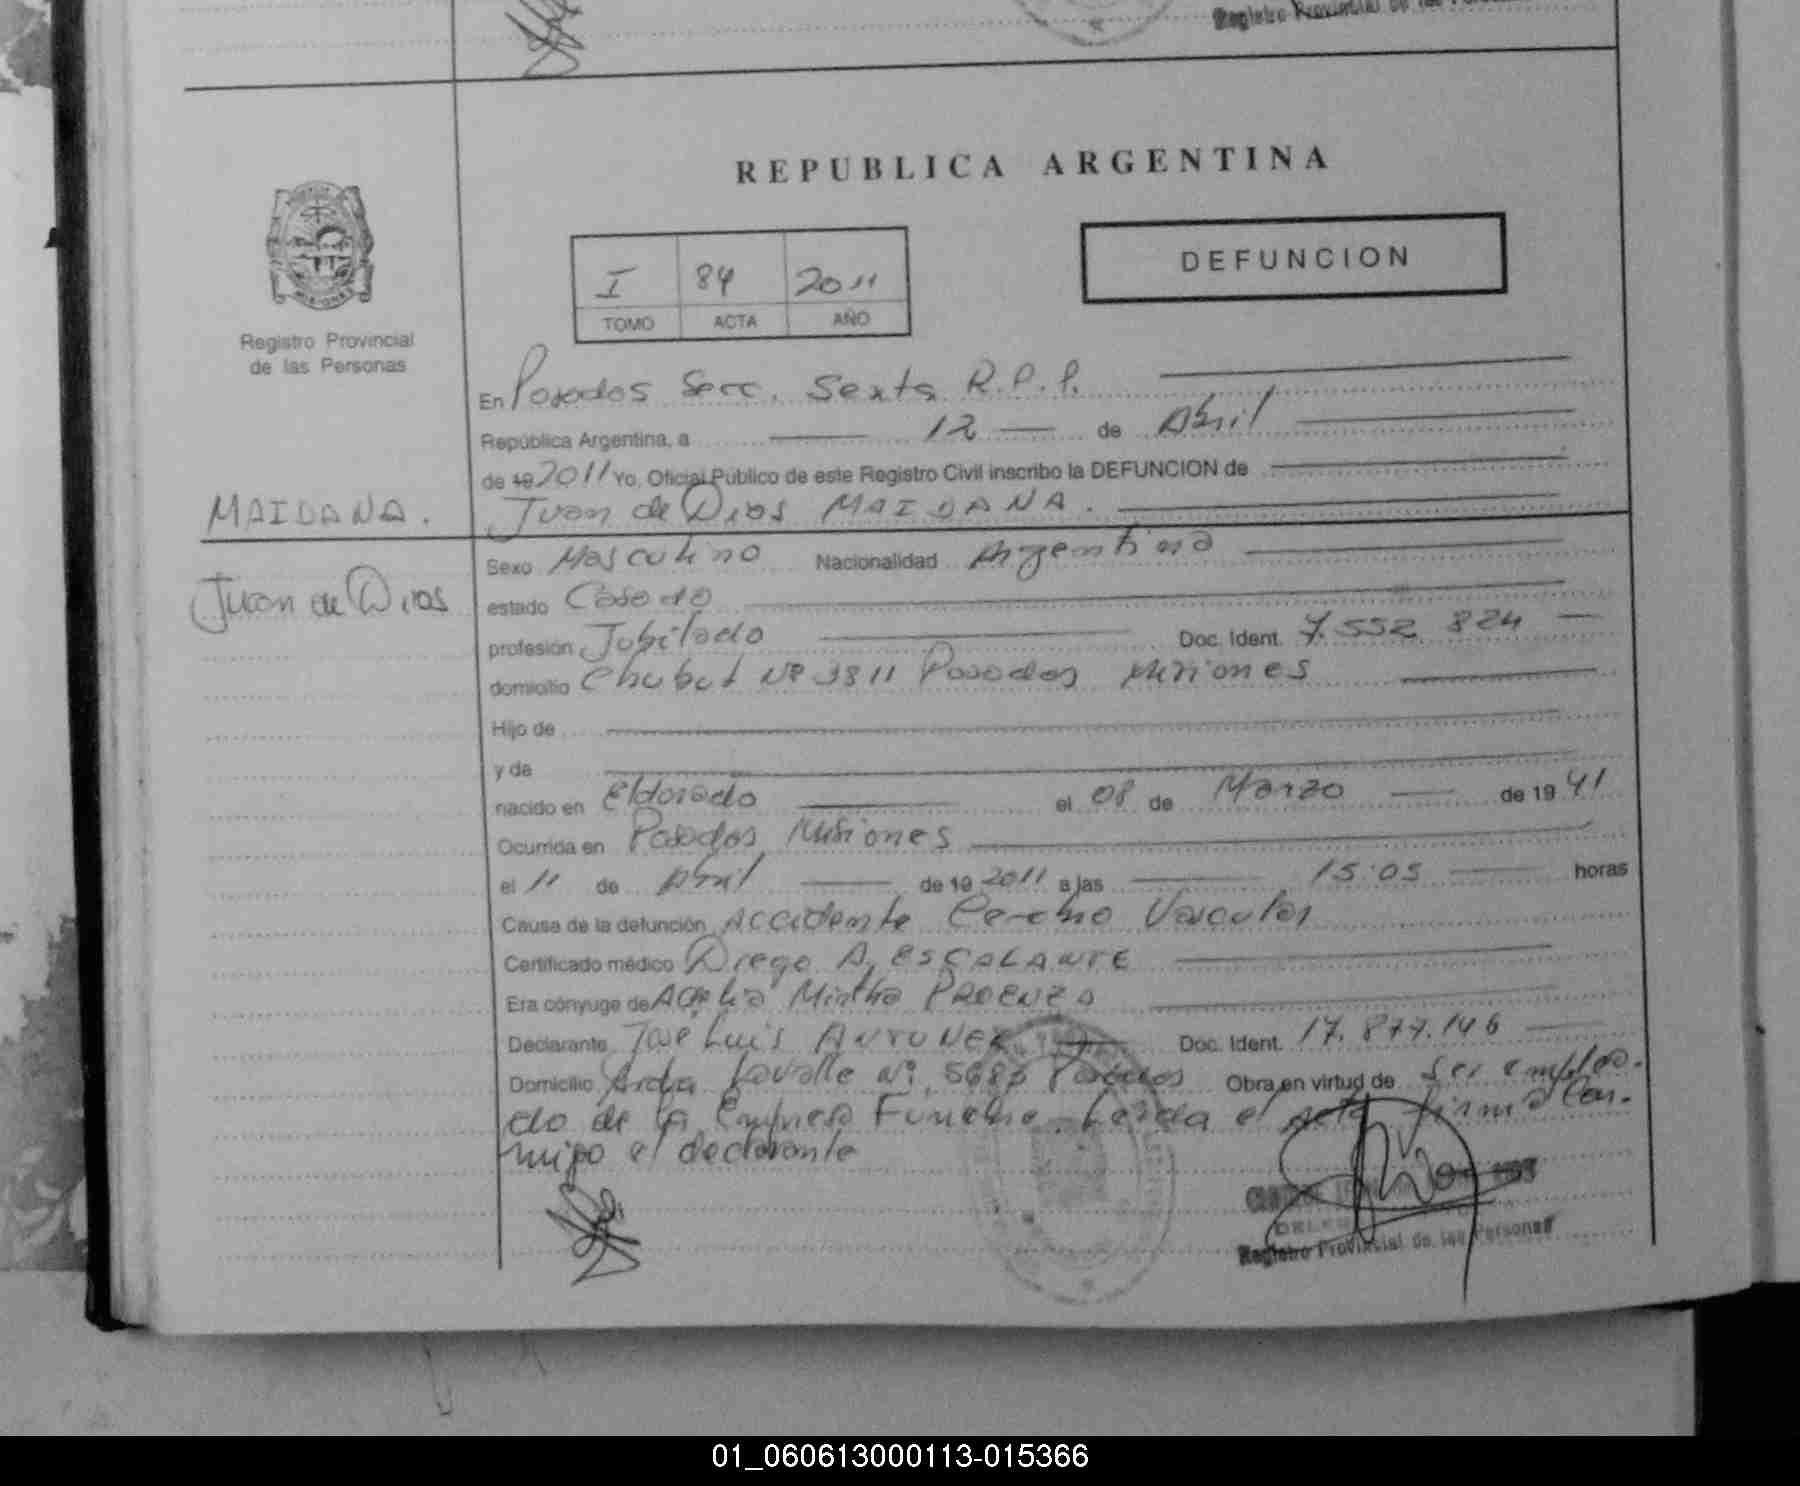 Registro Provincial de las Personas
REPUBLICA ARGENTINA
I 84 2011
TOMO ACTA AÑO
DEFUNCION
Registro Provincial
de las Personas
En Posadas Secc. Sexta R.P.P.
República Argentina, a 12 de Abril
de 19 2011 Yo, Oficial Público de este Registro Civil inscribo la DEFUNCION de
MAIDANA.
Juan de Dios MAIDANA.
Juan de Dios
Sexo Masculino Nacionalidad Argentina
estado Casado
profesión Jubilado Doc. Ident. 7.552.824
domicilio Chubut Nº 3811 Posadas Misiones
Hijo de
y de
nacido en Eldorado el 08 de Marzo de 19 41
Ocurrida en Posadas Misiones
el 11 de Abril de 19 2011 a las 15:05 horas
Causa de la defunción Accidente Cerebro Vascular
Certificado médico Diego A. ESCALANTE
Era cónyuge de Mirtha PROENZA
Declarante José Luis ANTUNEZ Doc. Ident. 17.877.146
Domicilio Avda Lavalle Nº 5685 Posadas Obra en virtud de ser emplea-
do de la Empresa Funebre. Leída el acta firma con-
migo el declarante
Registro Provincial de las Personas
01_060613000113-015366